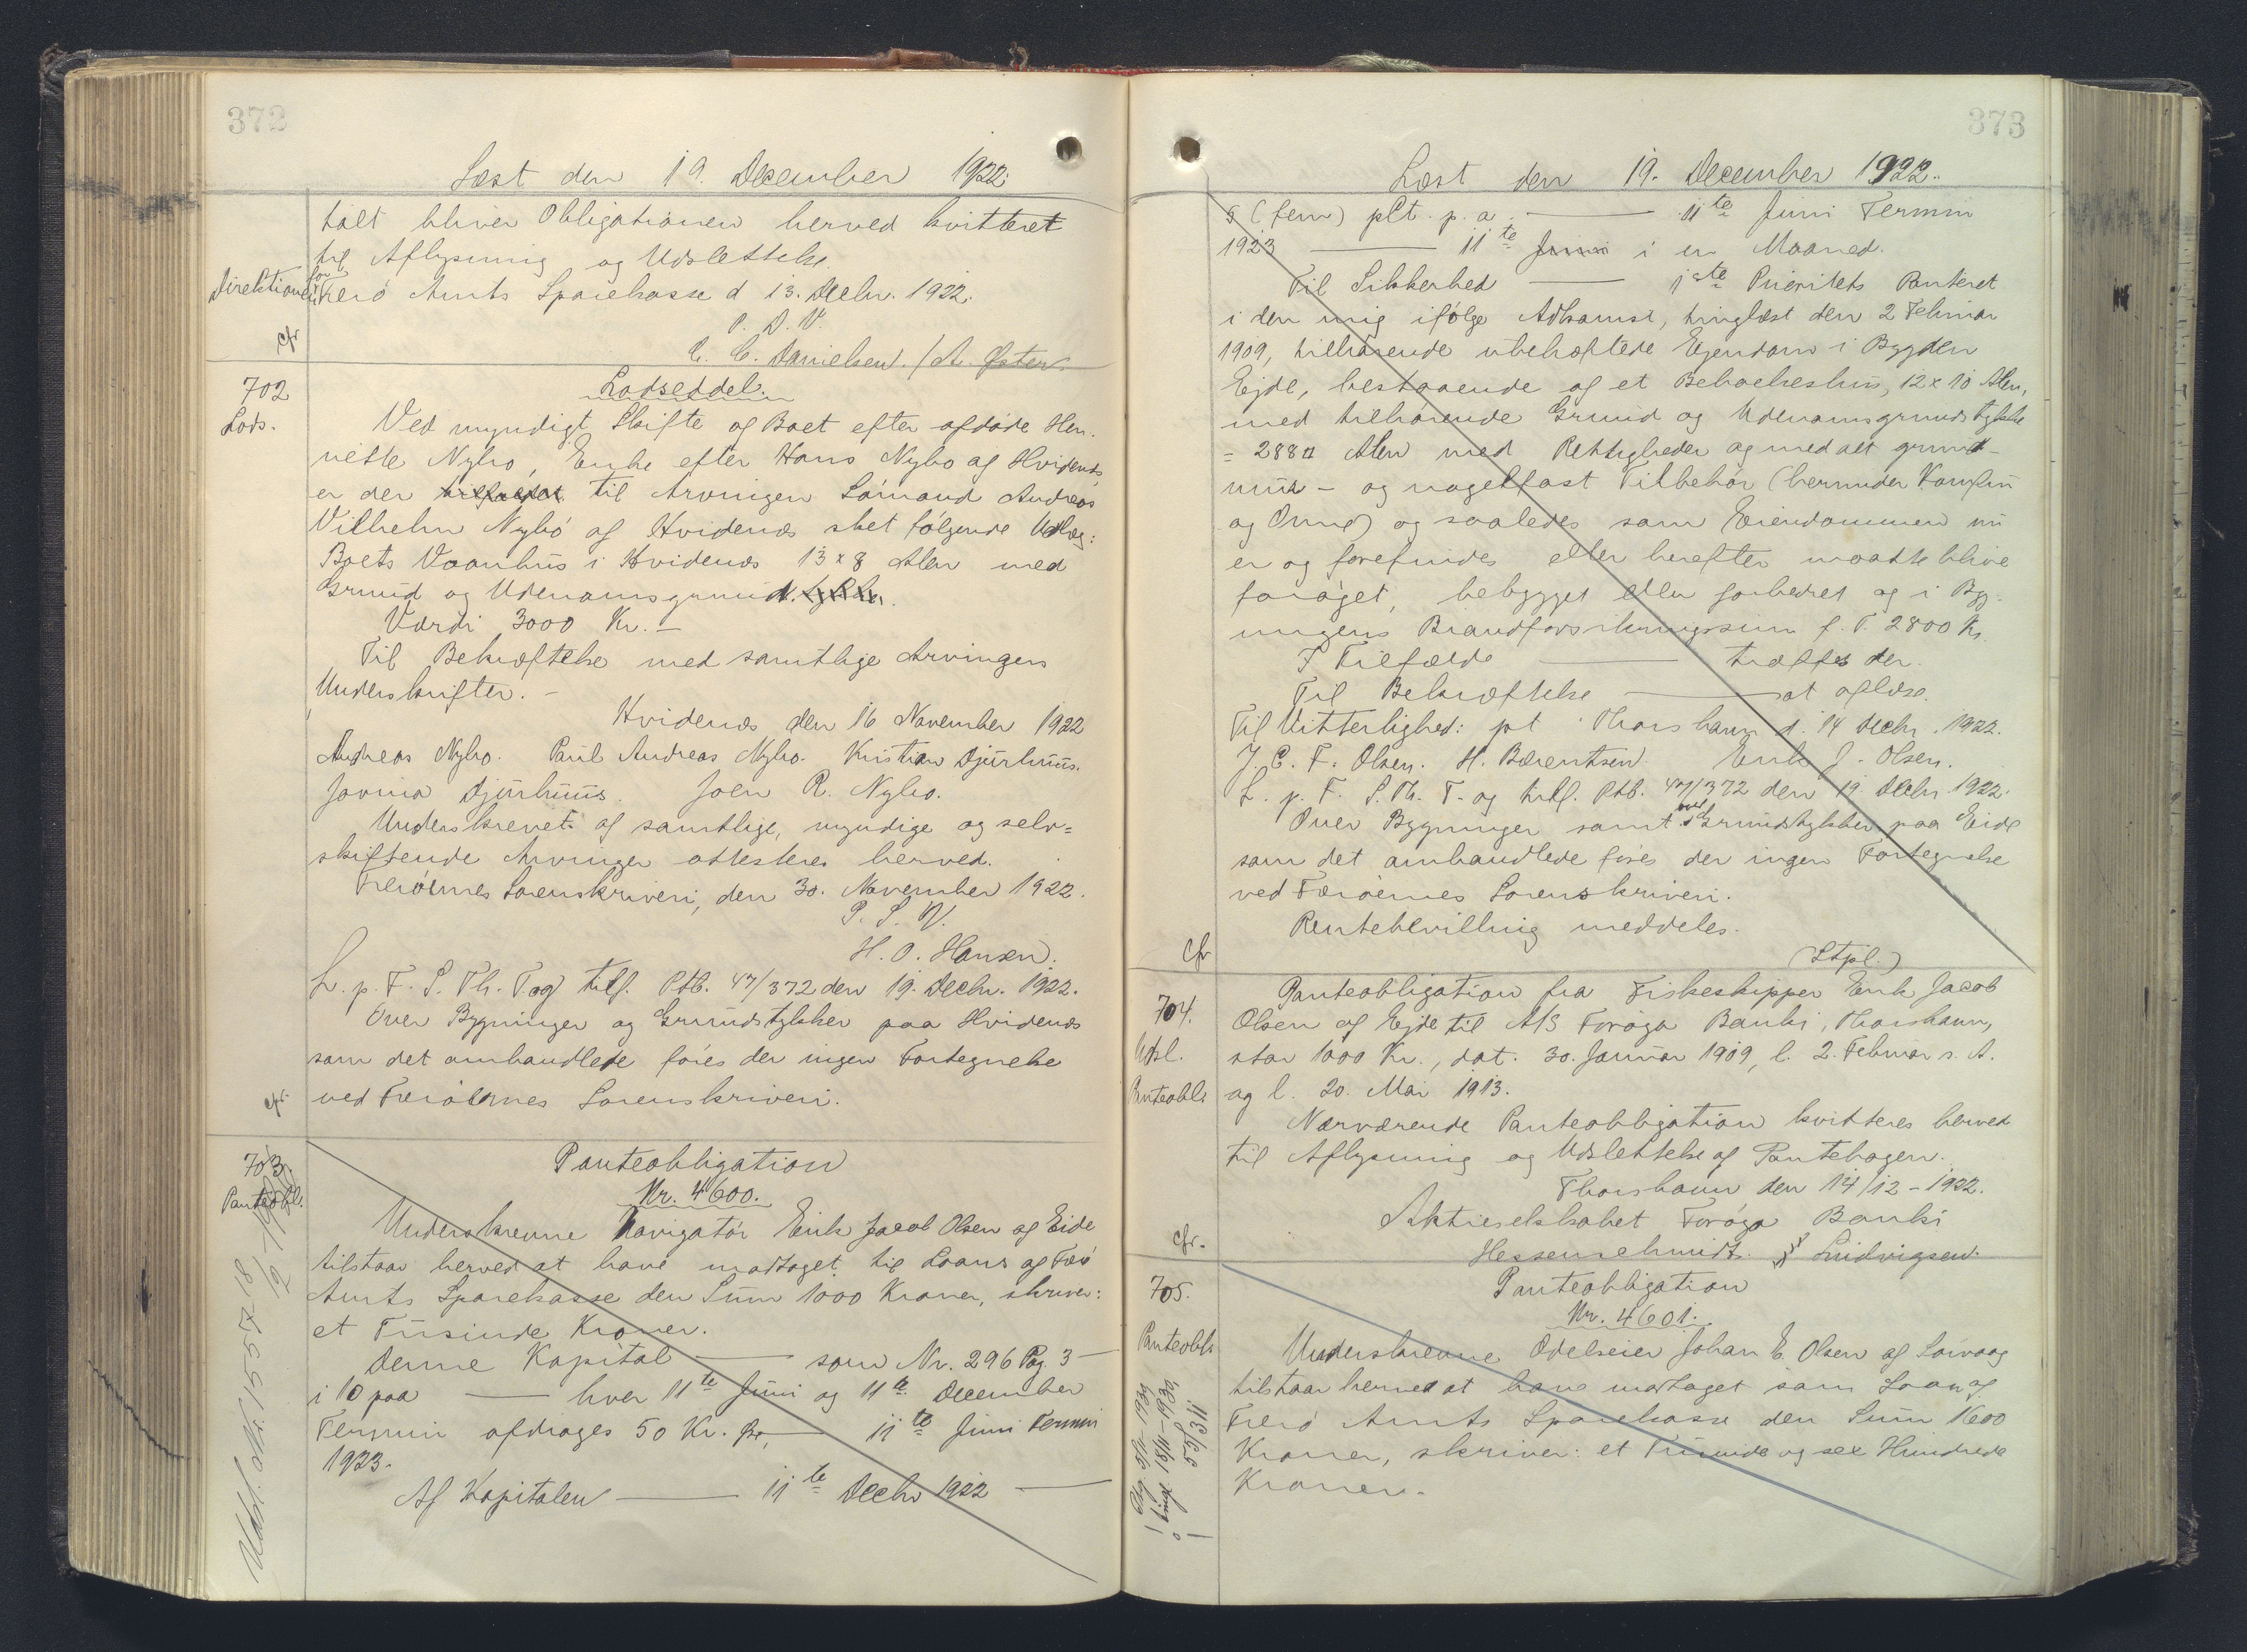 372
Læst den 19. December 1922.
talt bliver Obligationen herved kvitteret
til Aflysning og Udslettelse.
Direktionen for Færø Amts Sparekasse d 13. Decbr. 1922.
P. D. V.
cfr
C. C. Danielsen. / A. Øster.
702
Lods.
Lodseddel.
Ved myndigt Skifte af Boet efter afdøde Hen-
riette Nybo, Enke efter Hans Nybo af Hvidenæs,
er der til Arvingen Sømand Andreas
Vilhelm Nybó af Hvidenæs sket følgende Udlæg:
Boets Vaanhus i Hvidenæs 13 x 8 Alen med
Grund og Udenomsgrund.
Værdi 3000 Kr. –
Til Bekræftelse med samtlige Arvingers
Underskrifter. –
Hvidenæs den 16 November 1922
Andreas Nybo. Paul Andreas Nybo. Kristian Djurhuus.
Jovina Djurhuus. Joen R. Nybo.
Underskrevet af samtlige, myndige og selv=
skiftende Arvinger attesteres herved.
Færöernes Sorenskriveri, den 30. November 1922.
P. S. V.
H. O. Hansen.
L. p. F. S. Th. T. og tilf. Ptb. 47/372 den 19. Decbr. 1922.
Over Bygninger og Grundstykker paa Hvidenæs
som det omhandlede føres der ingen Fortegnelse
cfr. ved Færöernes Sorenskriveri.
703.
Panteobl.
Panteobligation
Nr. 4600.
Underskrevne Navigatør Enk Jacob Olsen af Eide
tilstaar herved at have modtaget til Laans af Færö
Amts Sparekasse den Sum 1000 Kroner, skriver:
et Tusinde Kroner.
Denne Kapital —— som Nr. 296 Pag. 3 —
i 10 paa —— hver 11te Juni og 11te December
Termin afdrages 50 Kr. —— 11te Juni Termin
1923.
Af Kapitalen —— 11te Decbr 1922 ——
373
Læst den 19. December 1922.
5 (fem) pCt. p. a. —— 11te Juni Termin
1923 —— 11te Juni i en Maaned.
Til Sikkerhed —— 1ste Prioritets Panteret
i den mig ifølge Adkomst, tinglæst den 2 Februar
1909, tilhørende ubehæftede Ejendom i Bygden
Ejde, bestaaende af et Beboelseshus, 12 x 10 Alen,
med tilhørende Grund og Udenomsgrundstykke
= 288 □ Alen med Rettigheder og med alt grund-
mur- og nagelfast Tilbehør (herunder Komfur
og Ovne) og saaledes som Eiendommen nu
er og forefindes eller herefter maatte blive
forøget, bebygget eller forbedret og i Byg-
ningens Brandforsikringssum f. T. 2800 Kr.
I Tilfælde —— træffes der.
Til Bekræftelse —— at aflæse.
Til Vitterlighed: pt Thorshavn d. 14 Decbr. 1922.
J. C. F. Olsen. H. Bærentsen. Enk J. Olsen.
L. p. F. S. Th. T. og tilf. Ptb. 47/372 den 19. Decbr 1922.
Over Bygninger samt Grundstykker paa Eide
som det omhandlede føres der ingen Fortegnelse
ved Færöernes Sorenskriveri.
Rentebevilling meddeles.
cfr
(Stpl.)
704.
Udsl.
Panteobl.
Panteobligation fra Fiskeskipper Enk Jacob
Olsen af Ejde til A/S Forøya Banki, Thorshavn,
stor 1000 Kr., dat. 30. Januar 1909, l. 2. Februar s. A.
og l. 20. Mai 1913.
Nærværende Panteobligation kvitteres herved
til Aflysning og Udslettelse af Pantebogen.
Thorshavn den 14/12 – 1922.
Aktieselskabet Forøya Banki
cfr.
Hessenschmidt. Ludvigsen.
705.
Panteobl.
Panteobligation
Nr. 4601.
Underskrevne Odelseier Johan E. Olsen af Sørvaag
tilstaar herved at have modtaget som Laan af
Færø Amts Sparekasse den Sum 1600
Kroner, skriver: et Tusinde og sex Hundrede
Kroner.
53/311